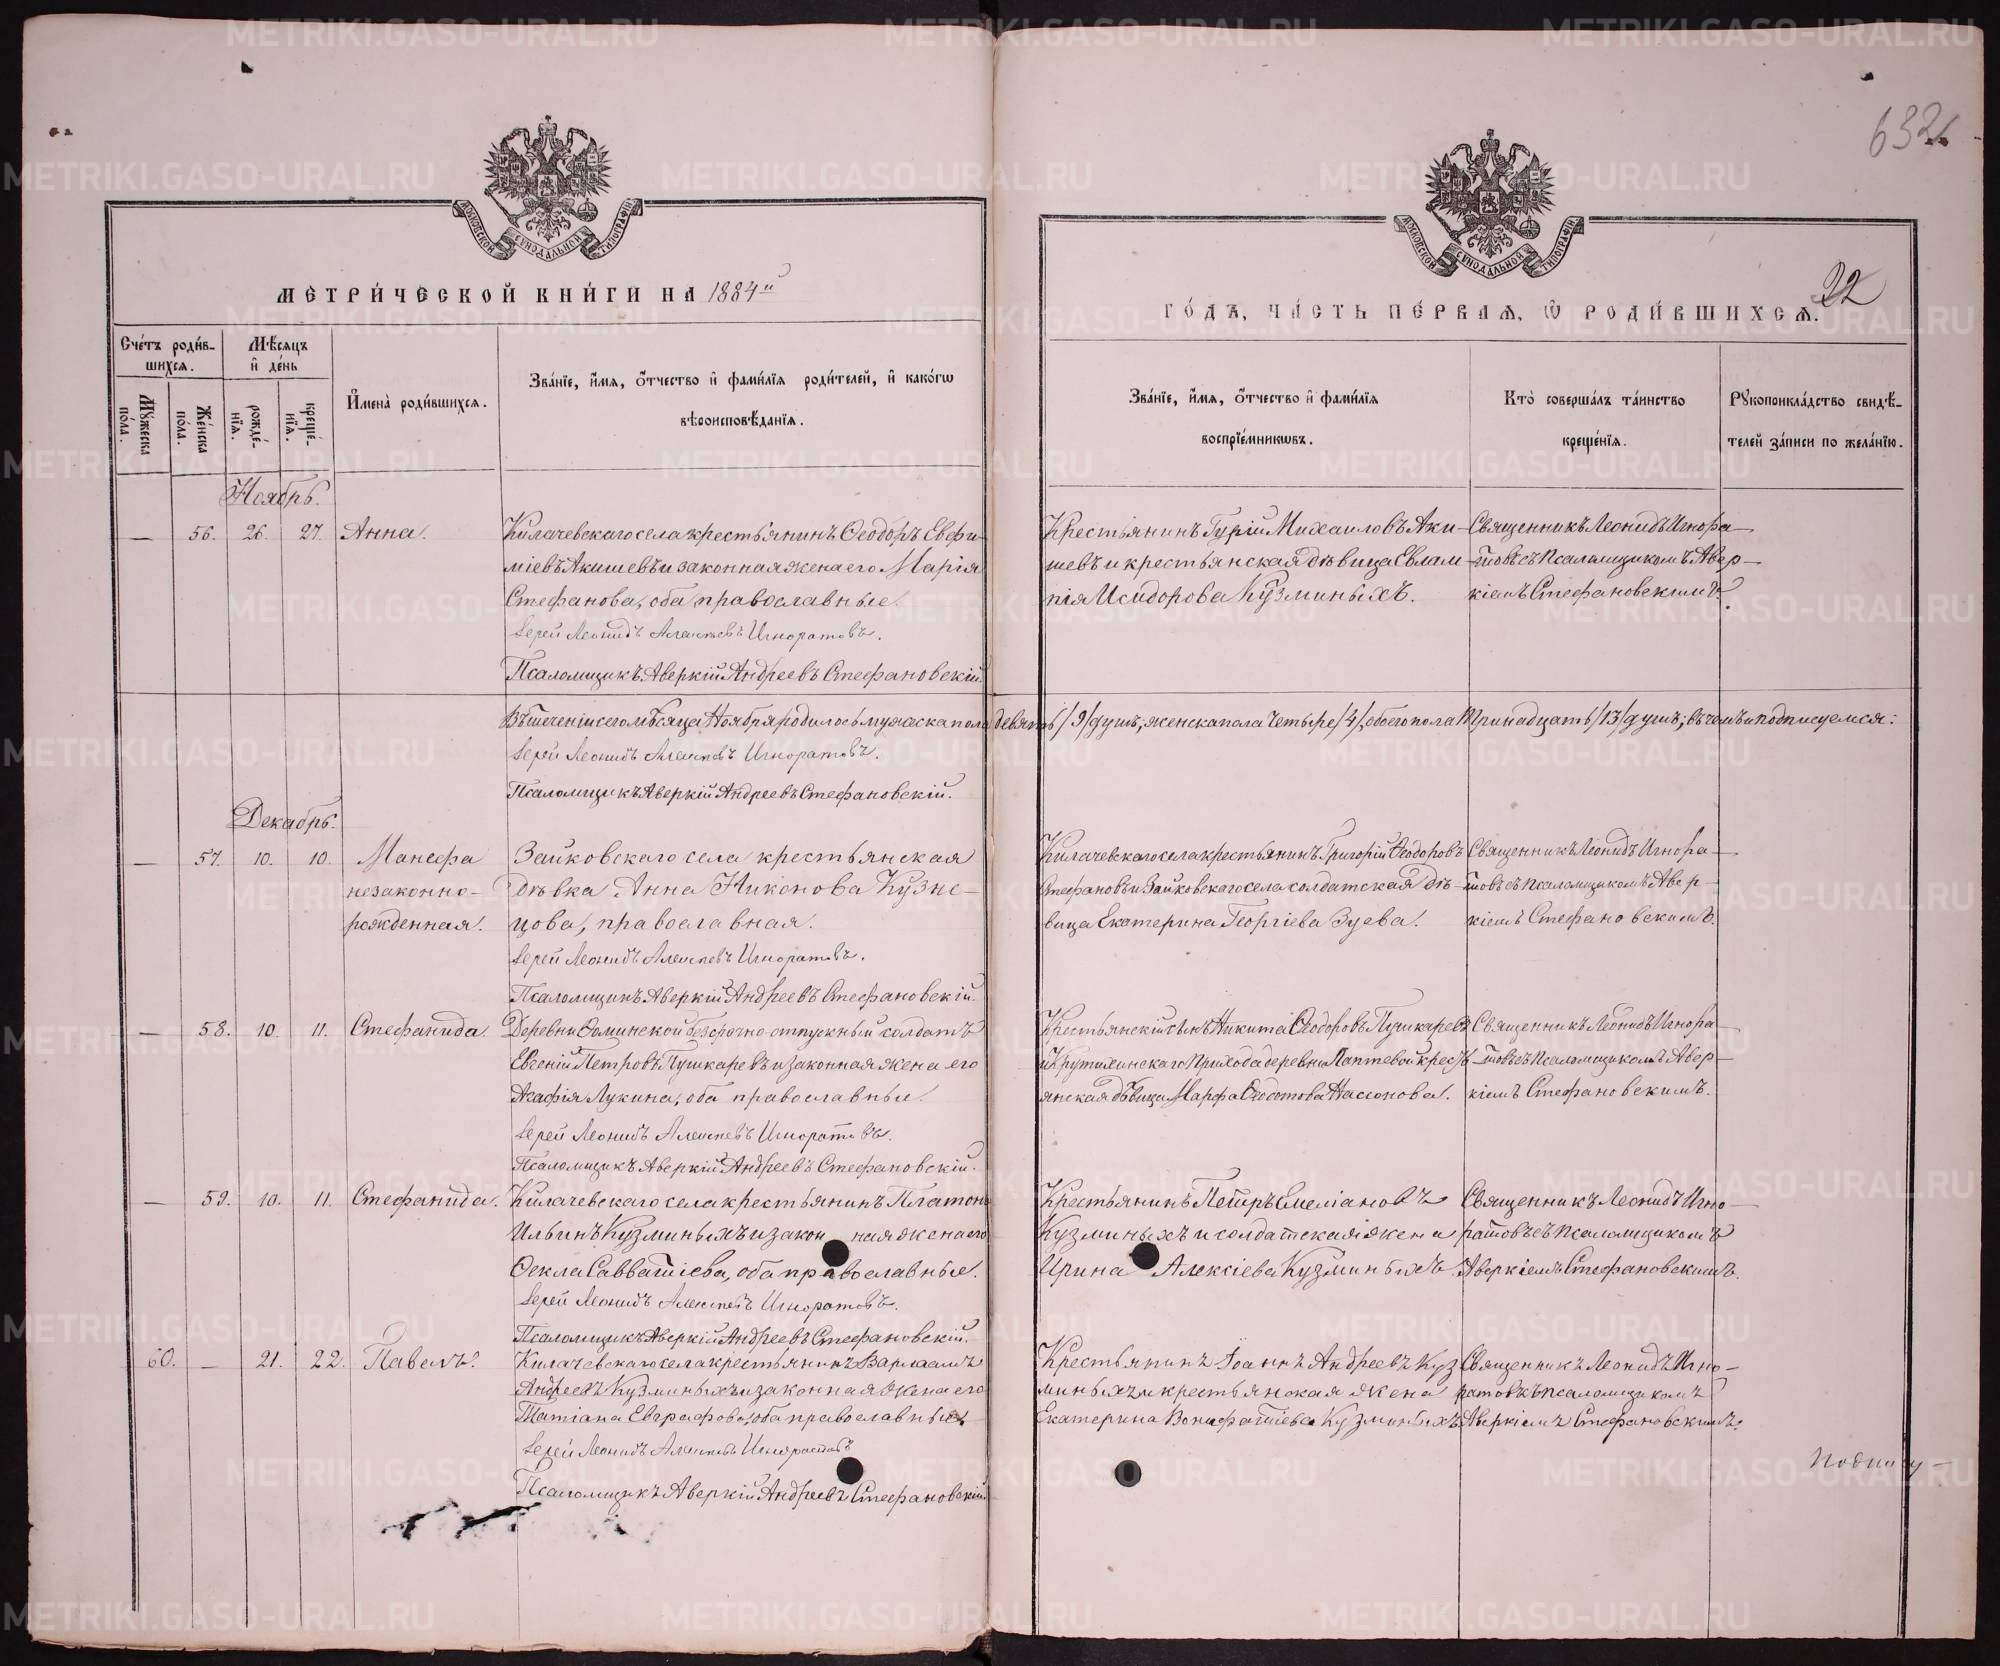 632
МОСКОВСКОЙ СѴНОДАЛЬНОЙ ТИПОГРАФІИ
МОСКОВСКОЙ СѴНОДАЛЬНОЙ ТИПОГРАФІИ
МЕТРИЧЕСКОЙ КНИГИ НА 1884й
ГОДЪ, ЧАСТЬ ПЕРВАЯ, Ѡ РОДИВШИХСЯ.
22
Счетъ родившихся.
Мужеска пола.
Женска пола.
Мѣсяцъ и день
рожденія.
крещенія.
Имена родившихся.
Званіе, имя, отчество и фамилія родителей, и какогѡ вѣроисповѣданія.
Званіе, имя, отчество и фамилія воспріемниковъ.
Кто совершалъ таинство крещенія.
Рукоприкладство свидѣтелей записи по желанію.
Ноябрь.
— 56. 26. 27. Анна.
Килачевскаго села крестьянинъ Ѳеодоръ Евфи-
міевъ Акишевъ и законная жена его Марія
Стефанова, оба православные.
Крестьянинъ Гурій Михаиловъ Аки-
шевъ и крестьянская дѣвица Евлам-
пія Исидорова Кузминыхъ.
Священникъ Леонидъ Игнора-
товъ съ псаломщикомъ Авер-
кіемъ Стефановскимъ.
Іерей Леонидъ Алексѣевъ Игноратовъ.
Псаломщикъ Аверкій Андреевъ Стефановскій.
Въ теченіи сего мѣсяца Ноября родилось мужеска пола девять /9/ душъ, женска пола четыре /4/, обоего пола тринадцать /13/ душъ; въ чемъ и подписуемся:
Іерей Леонидъ Алексѣевъ Игноратовъ.
Псаломщикъ Аверкій Андреевъ Стефановскій.
Декабрь.
— 57. 10. 10. Манефа
незаконно-
рожденная.
Зайковскаго села крестьянская
дѣвка Анна Никонова Кузне-
цова, православная.
Килачевскаго села крестьянинъ Григорій Ѳеодоровъ
Стефановъ и Зайковскаго села солдатская дѣ-
вица Екатерина Георгіева Зуева.
Священникъ Леонидъ Игнора-
товъ съ псаломщикомъ Авер-
кіемъ Стефановскимъ.
Іерей Леонидъ Алексѣевъ Игноратовъ.
Псаломщикъ Аверкій Андреевъ Стефановскій.
— 58. 10. 11. Стефанида.
Деревни Ѳоминской безсрочно-отпускный солдатъ
Евгеній Петровъ Пушкаревъ и законная жена его
Агафія Лукина, оба православные.
Крестьянскій сынъ Никита Ѳеодоровъ Пушкаревъ
и Крутихинскаго прихода деревни Лаптевой кресть-
янская дѣвица Марфа Ѳеодотова Насонова.
Священникъ Леонидъ Игнора-
товъ съ псаломщикомъ Авер-
кіемъ Стефановскимъ.
Іерей Леонидъ Алексѣевъ Игноратовъ.
Псаломщикъ Аверкій Андреевъ Стефановскій.
— 59. 10. 11. Стефанида.
Килачевскаго села крестьянинъ Платонъ
Ильинъ Кузминыхъ и законная жена его
Ѳекла Савватіева, оба православные.
Крестьянинъ Петръ Емеліановъ
Кузминыхъ и солдатская жена
Ирина Алексіева Кузминыхъ.
Священникъ Леонидъ Игно-
ратовъ съ псаломщикомъ
Аверкіемъ Стефановскимъ.
Іерей Леонидъ Алексѣевъ Игноратовъ.
Псаломщикъ Аверкій Андреевъ Стефановскій.
60. — 21. 22. Павелъ.
Килачевскаго села крестьянинъ Варлаамъ
Андреевъ Кузминыхъ и законная жена его
Татіана Евграфова, оба православные
Крестьянинъ Іоаннъ Андреевъ Куз
миныхъ и крестьянская жена
Екатерина Вонифатіева Кузминыхъ
Священникъ Леонидъ Игно-
ратовъ съ псаломщикомъ
Аверкіемъ Стефановскимъ.
Іерей Леонидъ Алексѣевъ Игноратовъ
Псаломщикъ Аверкій Андреевъ Стефановскій.
Подпису-